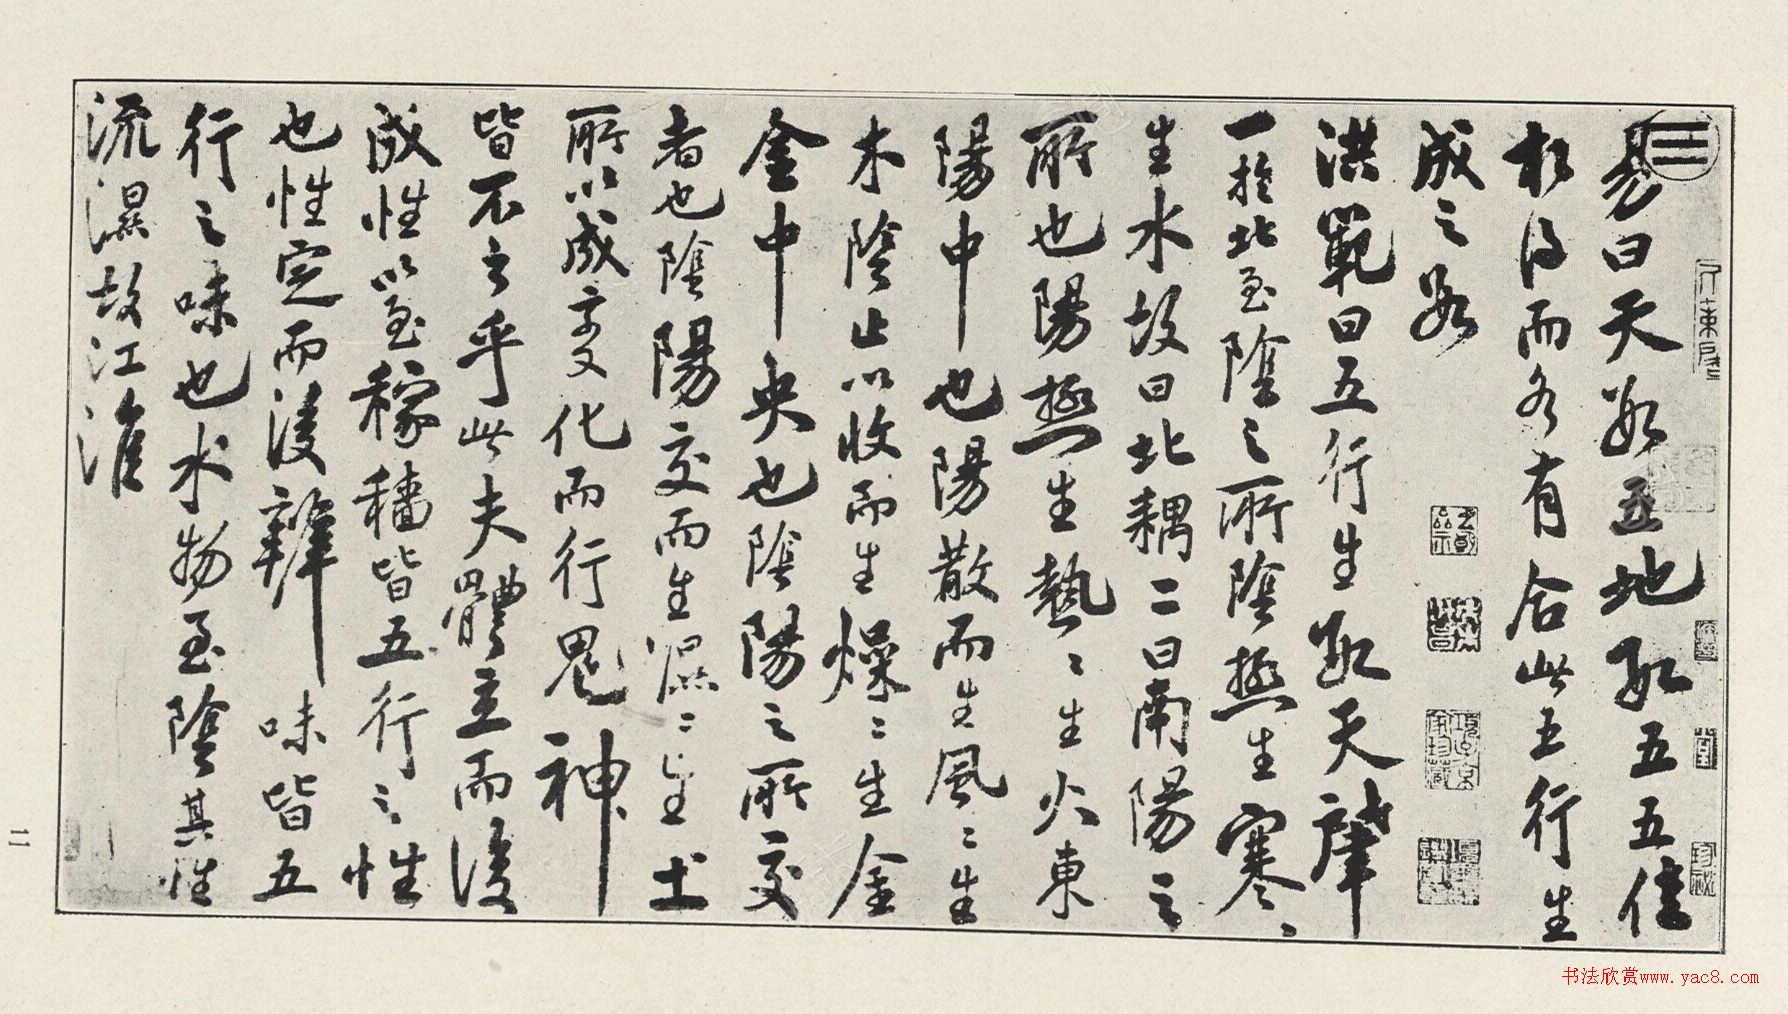 易曰天數五地數五五位
相得而各有合此五行生
成之數
洪範曰五行生數天肇
一於北至陰之所陰極生寒〻
生水故曰北耦二曰南陽之
所也陽極生熱〻生火東
陽中也陽散而生風〻生
木陰止以收而生燥〻生金
金中央也陰陽之所交
者也陰陽交而生濕〻生土
所以成變化而行鬼神
皆不出乎此夫體立而後
成性以至稼穡皆五行之性
也性定而後辨味皆五
行之味也水物至陰其性
流濕故江淮
二
书法欣赏www.yac8.com